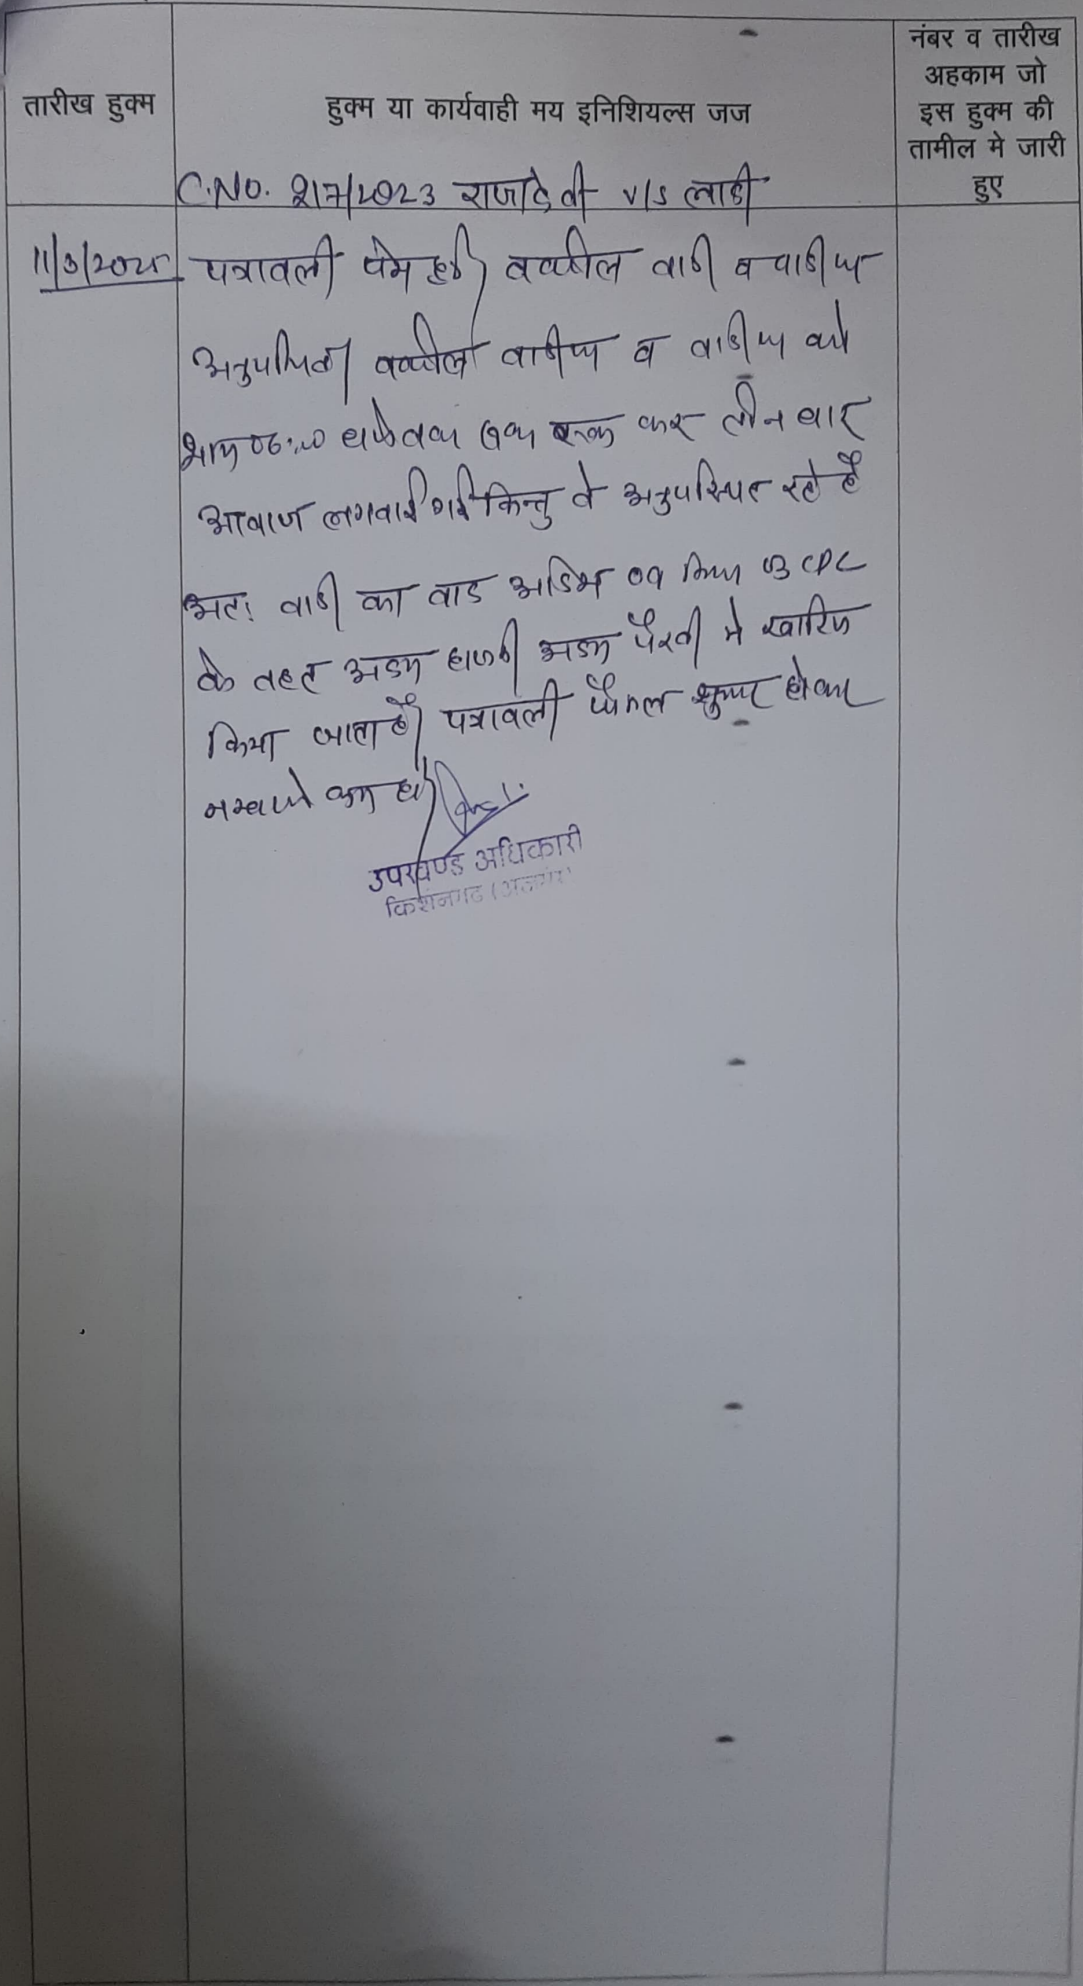 तारीख हुक्म
हुक्म या कार्यवाही मय इनिशियल्स जज
नंबर व तारीख
अहकाम जो
इस हुक्म की
तामील मे जारी
हुए
C.NO. 217/2023 राजादेवी v/s लाडी
11/3/2025
पत्रावली पेश हुई। वकील वादी व वादीया
अनुपस्थित। वकील वादीया व वादीया को
बजे तक एक एक कर तीन बार
आवाज लगवाई गई किन्तु वे अनुपस्थित रहे है
अतः वादी का वाद 09 नियम 03 CPC
के तहत अदम हाजरी अदम पैरवी मे खारिज
किया जाता है। पत्रावली फैसल शुमार होकर
नम्बर से कम हो।
उपखण्ड अधिकारी
किशनगढ (अजमेर)